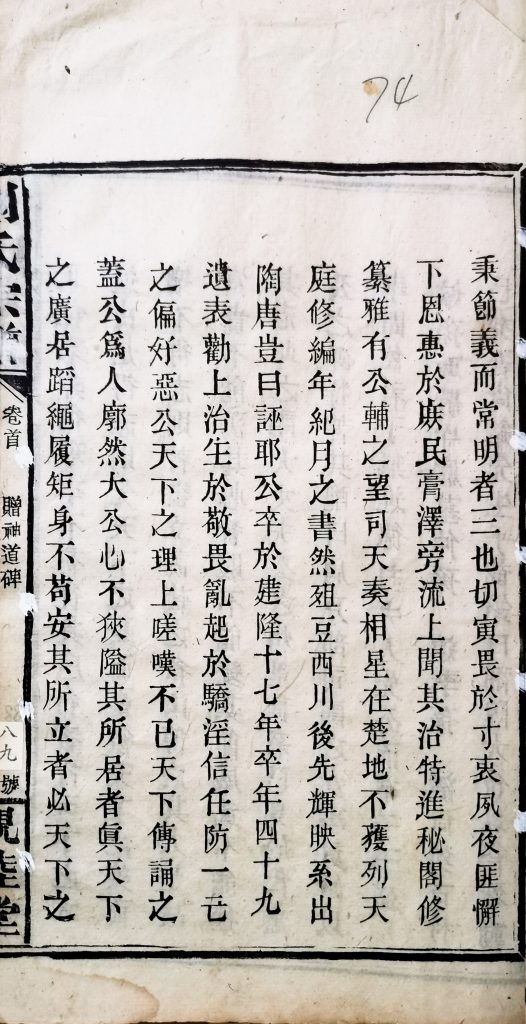 74
秉節義而常明者三也切寅畏於寸衷夙夜匪懈
下恩惠於庻民膏澤旁流上聞其治特進秘閣修
纂雅有公輔之望司天奏相星在楚地不獲列天
庭修編年紀月之書然爼豆西川後先輝映系出
陶唐豈曰誣耶公卒於建隆十七年卒年四十九
遺表勸上治生於敬畏亂起於驕淫信任防一己
之偏好惡公天下之理上嗟嘆不已天下傳誦之
蓋公爲人廓然大公心不狹隘其所居者眞天下
之廣居蹈繩履矩身不苟安其所立者必天下之
氏宗譜
卷首
贈神道碑
八九號
堂